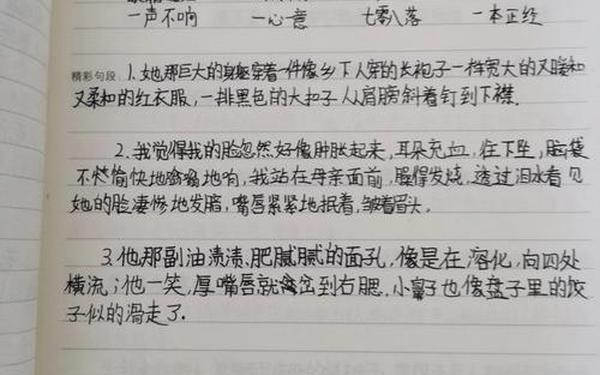 一声不响 一心一意 七零八落 一本正经
精彩句段: 1.她那巨大的身躯穿着一件像乡下人穿的长袍子一样宽大的又暖和
又柔和的红衣服,一排黑色的大扣子从肩膀斜着钉到下襟.
2.我觉得我的脸忽然好像肿胀起来,耳朵充血,往下坠,脑袋
不愉快地嗡嗡地响,我站在母亲面前,臊得发烧,透过泪水看见
她的脸凄惨地发暗,嘴唇紧紧地抿着,皱着眉头.
3.他那副油渍渍、肥腻腻的面孔,像是在溶化,向四处
横流;他一笑,厚嘴唇就岔到右腮,小鼻子也像盘子里的饺
子似的滑走了.